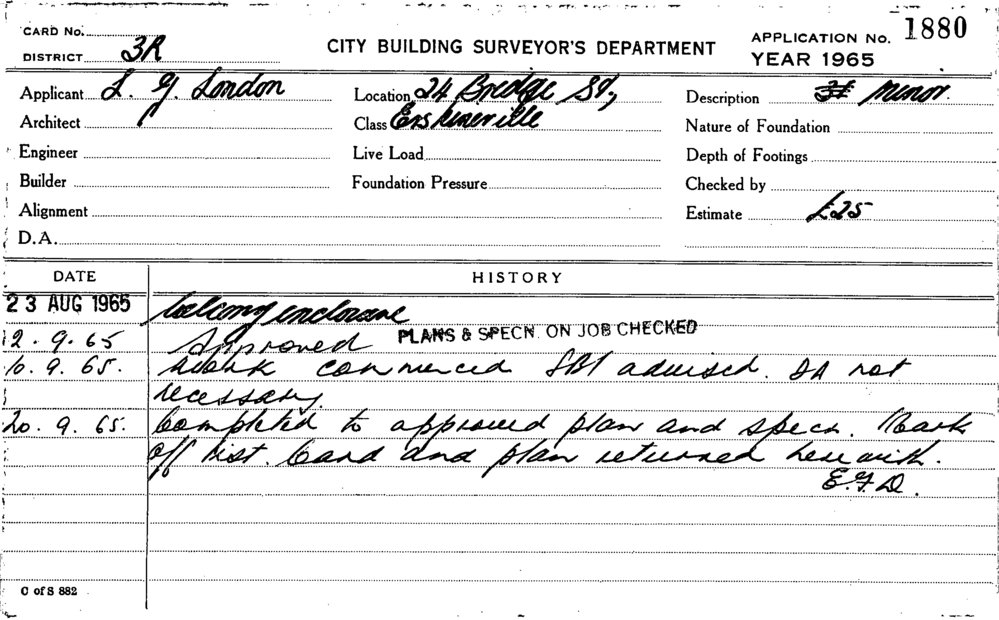 CARD No.
DISTRICT 3R
CITY BUILDING SURVEYOR'S DEPARTMENT
APPLICATION No. 1880
YEAR 1965
Applicant L. G. London
Location 24 Bridge St,
Description Minor.
Architect
Class Erskineville
Nature of Foundation
Engineer
Live Load
Depth of Footings
Builder
Foundation Pressure
Checked by
Alignment
Estimate £25
D.A.
DATE
HISTORY
23 AUG 1965 balcony enclosure
2. 9. 65 Approved PLANS & SPECN. ON JOB CHECKED
10. 9. 65. Work commenced advised. DA not
necessary.
20. 9. 65. Completed to approved plan and specn. Mark
off list. Card and plan returned herewith.
E.G.D.
C of S 882